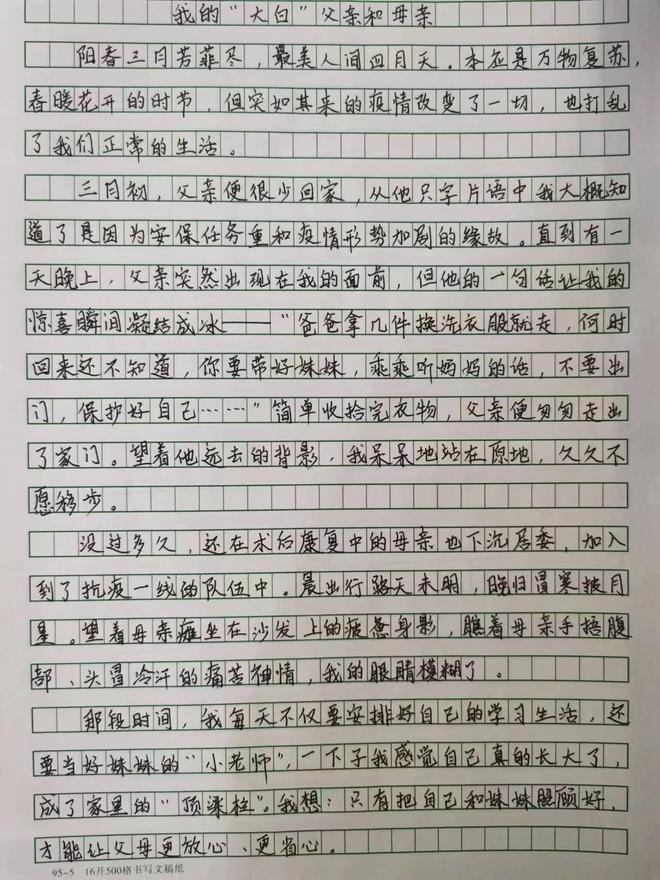 我的“大白”父亲和母亲
阳春三月芳菲尽，最美人间四月天。本应是万物复苏，
春暖花开的时节，但突如其来的疫情改变了一切，也打乱
了我们正常的生活。
三月初，父亲便很少回家，从他只字片语中我大概知
道了是因为安保任务重和疫情形势加剧的缘故。直到有一
天晚上，父亲突然出现在我的面前，但他的一句话让我的
惊喜瞬间凝结成冰——“爸爸拿几件换洗衣服就走，何时
回来还不知道，你要带好妹妹，乖乖听妈妈的话，不要出
门，保护好自己……”简单收拾完衣物，父亲便匆匆走出
了家门。望着他远去的背影，我呆呆地站在原地，久久不
愿移步。
没过多久，还在术后康复中的母亲也下沉居委，加入
到了抗疫一线的队伍中。晨出行路天未明，晚归冒寒披月
星。望着母亲瘫坐在沙发上的疲惫身影，瞧着母亲手捂腹
部、头冒冷汗的痛苦神情，我的眼睛模糊了。
那段时间，我每天不仅要安排好自己的学习生活，还
要当好妹妹的“小老师”，一下子我感觉自己真的长大了，
成了家里的“顶梁柱”。我想：只有把自己和妹妹照顾好，
才能让父母更放心、更省心。
95-5 16开500格书写文稿纸